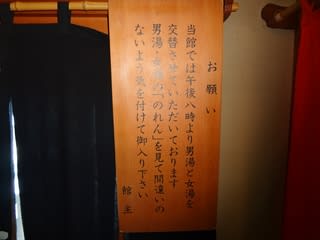 お願い
当館では午後八時より男湯と女湯を
交替させていただいております
男湯・女湯の「のれん」を見て間違いの
ないよう気を付けて御入り下さい
館主